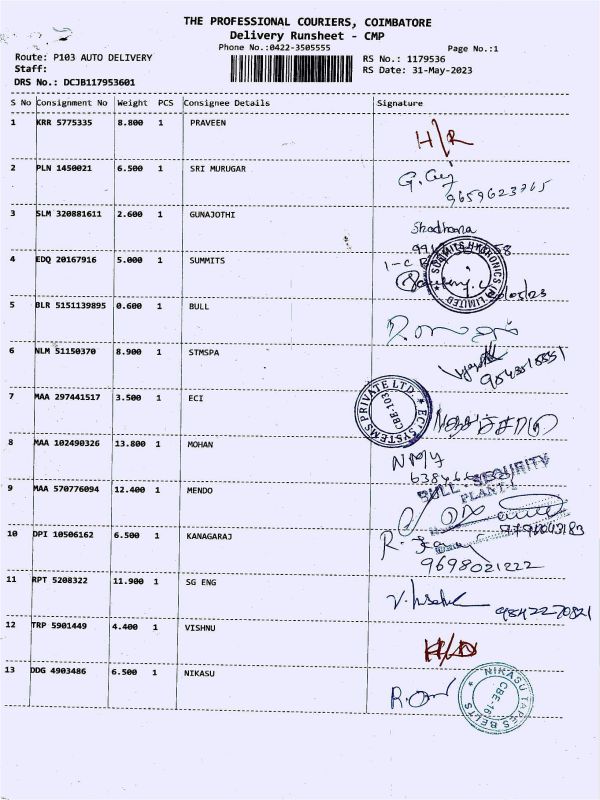 THE PROFESSIONAL COURIERS, COIMBATORE
Delivery Runsheet - CMP
Phone No.:0422-3505555
Page No.:1
Route: P103 AUTO DELIVERY
RS No.: 1179536
Staff:
RS Date: 31-May-2023
DRS No.: DCJB117953601
S No Consignment No Weight PCS Consignee Details Signature
1 KRR 5775335 8.800 1 PRAVEEN
H/R
2 PLN 1450021 6.500 1 SRI MURUGAR
9659623765
3 SLM 320881611 2.600 1 GUNAJOTHI
Shadhana
4 EDQ 20167916 5.000 1 SUMMITS
5 BLR 5151139895 0.600 1 BULL
6 NLM 51150370 8.900 1 STMSPA
7 MAA 297441517 3.500 1 ECI
ECI SYSTEMS PRIVATE LTD.
CBE-103
8 MAA 102490326 13.800 1 MOHAN
9 MAA 570776094 12.400 1 MENDO
BULL SECURITY
PLANT-1
10 DPI 10506162 6.500 1 KANAGARAJ
9698021222
11 RPT 5208322 11.900 1 SG ENG
98422-70821
12 TRP 5901449 4.400 1 VISHNU
13 DDG 4903486 6.500 1 NIKASU
NIKASU TAPES BELTS
CBE-16